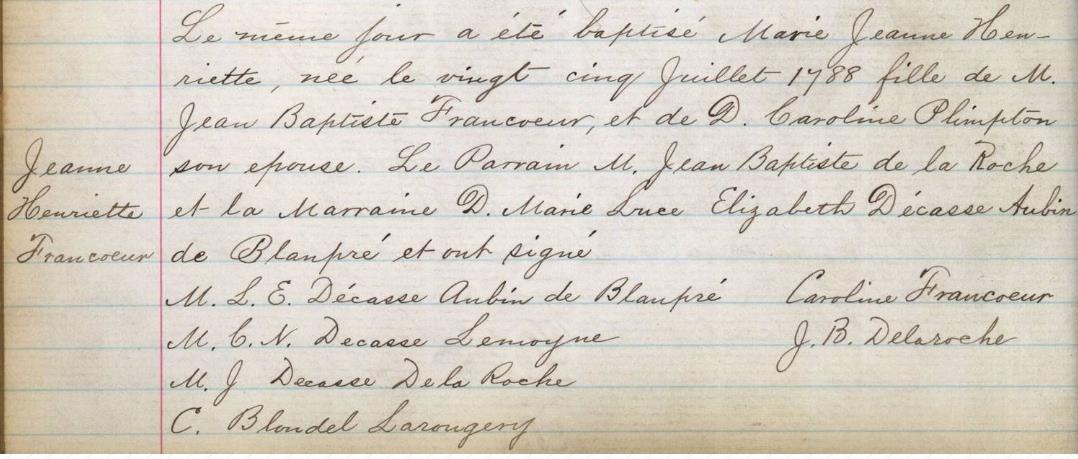 Le même jour a été baptisé Marie Jeanne Hen-
riette, née le vingt cinq Juillet 1788 fille de M.
Jean Baptiste Francoeur, et de D. Caroline Plimpton
son epouse. Le Parrain M. Jean Baptiste de la Roche
et la Marraine D. Marie Luce Elizabeth Décasse Aubin
de Blanpré et ont signé
Jeanne
Henriette
Francoeur
M. L. E. Décasse Aubin de Blanpré
Caroline Francoeur
M. C. N. Decasse Lemoyne
J. B. Delaroche
M. J Decasse De la Roche
C. Blondel Larougery